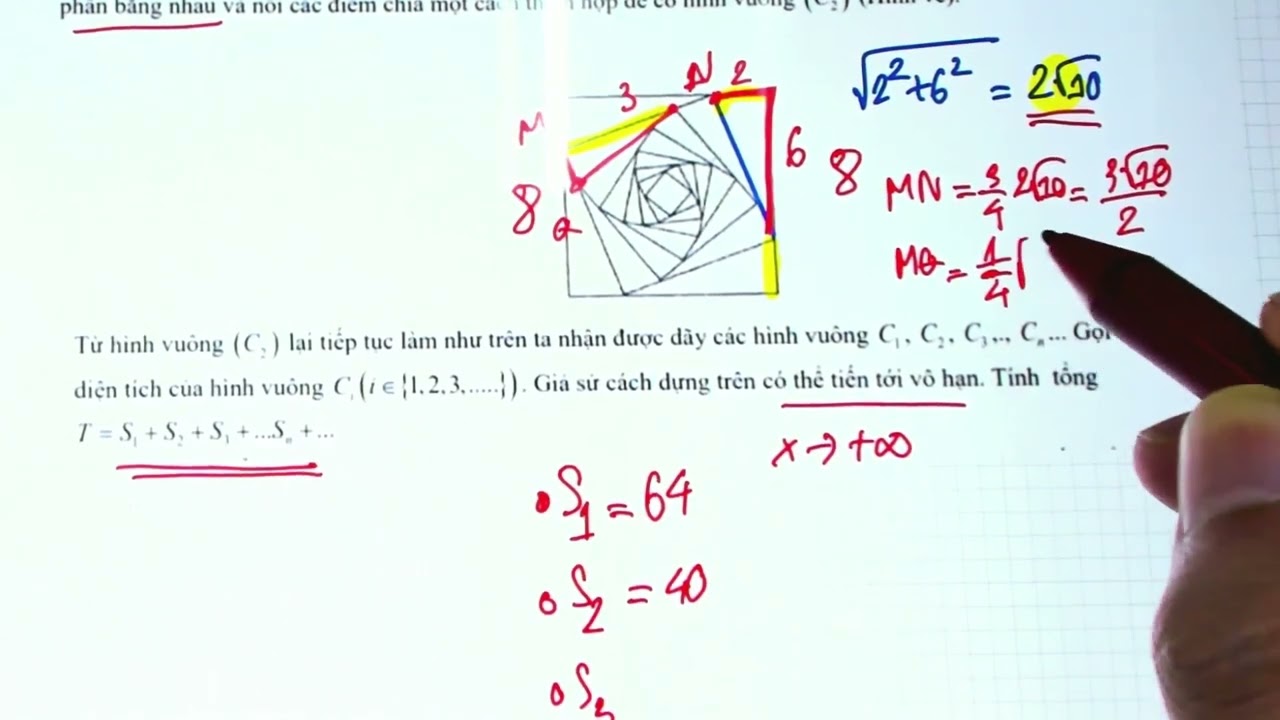 phần bằng nhau và nối các điểm chia một
√2²+6² = 2√10
N 2
3
M
6 8
8
Q
MN = 3/4 2√10 = 3√10/2
MQ = 1/4 √
Từ hình vuông (C₂) lại tiếp tục làm như trên ta nhận được dãy các hình vuông C₁, C₂, C₃,.., Cₙ... Gọi
diện tích của hình vuông Cᵢ (i ∈ {1,2,3,.....}). Giả sử cách dựng trên có thể tiến tới vô hạn. Tính tổng
T = S₁ + S₂ + S₃ + ...Sₙ + ...
x → +∞
• S₁ = 64
• S₂ = 40
• S₃